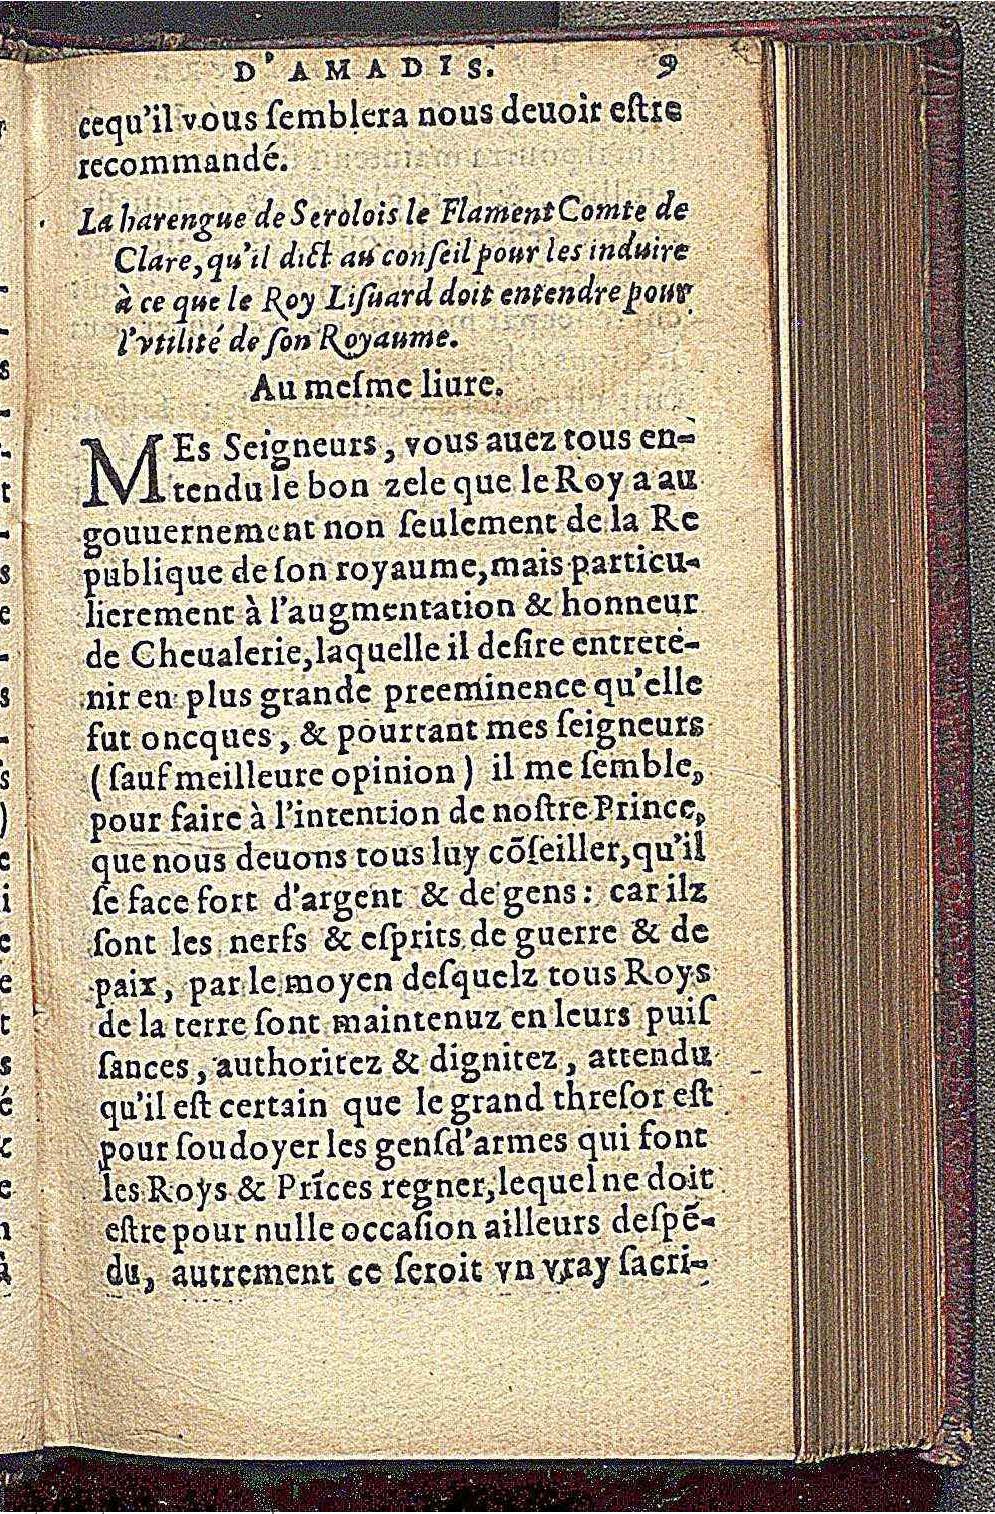 D'AMADIS. 9
cequ'il vous ſemblera nous deuoir eſtre
recommandé.
La harengue de Serolois le Flament Comte de
Clare, qu'il dict au conſeil pour les induire
à ce que le Roy Liſuard doit entendre pour
l'vtilité de ſon Royaume.
Au meſme liure.
MEs Seigneurs, vous auez tous en-
tendu le bon zele que le Roy a au
gouuernement non ſeulement de la Re
publique de ſon royaume, mais particu-
lierement à l'augmentation & honneur
de Cheualerie, laquelle il deſire entrete-
nir en plus grande preeminence qu'elle
fut oncques, & pourtant mes ſeigneurs
(ſauf meilleure opinion) il me ſemble,
pour faire à l'intention de noſtre Prince,
que nous deuons tous luy cõſeiller, qu'il
ſe face fort d'argent & de gens: car ilz
ſont les nerfs & eſprits de guerre & de
paix, par le moyen deſquelz tous Roys
de la terre ſont maintenuz en leurs puiſ
ſances, authoritez & dignitez, attendu
qu'il eſt certain que le grand threſor eſt
pour ſoudoyer les genſd'armes qui font
les Roys & Prīces regner, lequel ne doit
eſtre pour nulle occaſion ailleurs deſpẽ-
du, autrement ce ſeroit vn vray ſacri-